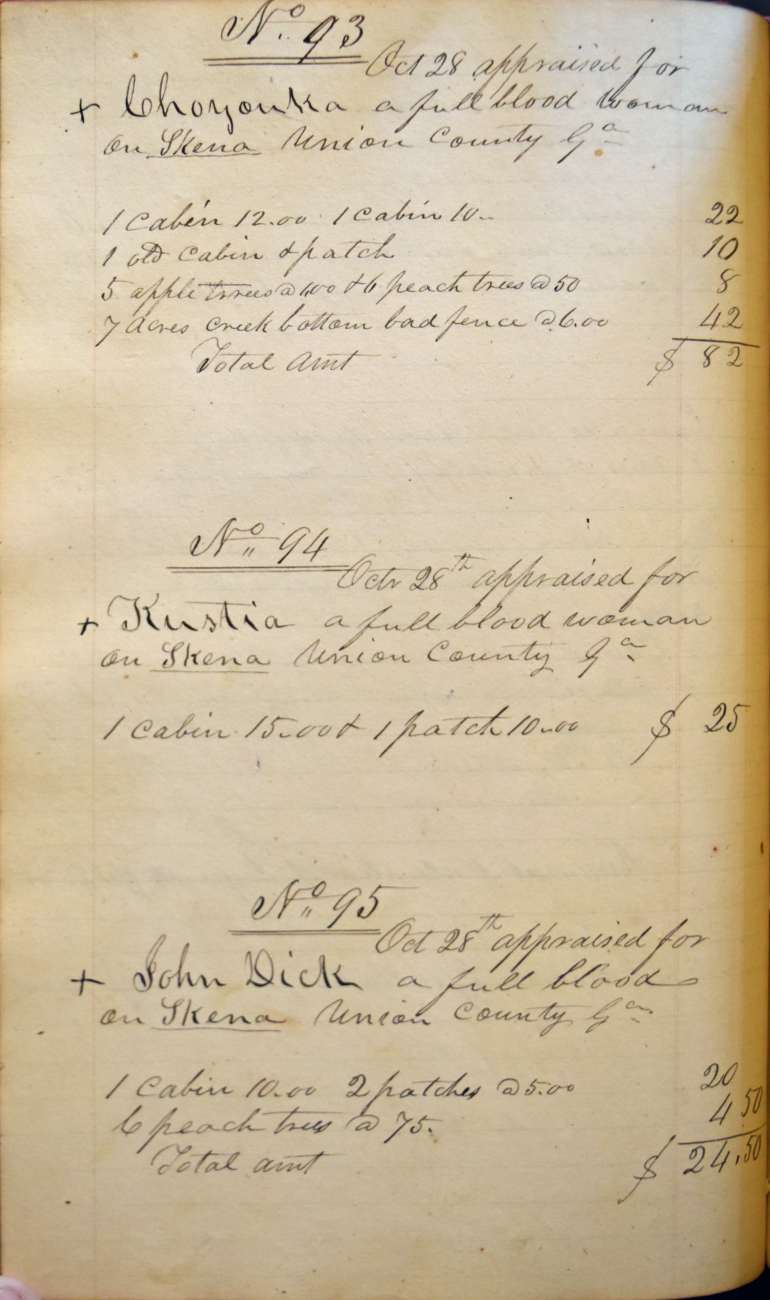 No. 93
Oct 28 appraised for
+ Choyouka a full blood woman
on Skena Union County Ga
1 cabin 12.00 1 cabin 10.. 22
1 old cabin & patch 10
5 apple trrees @ 1.00 & 6 peach trees @ 50 8
7 acres creek bottom bad fence @ 6.00 42
Total Amt $ 82
No. 94
Octr 28th appraised for
+ Kustia a full blood woman
on Skena Union County Ga
1 cabin 15.00 & 1 patch 10.00 $ 25
No. 95
Oct 28th appraised for
+ John Dick a full blood
on Skena Union County Ga
1 Cabin 10.00 2 patches @ 5.00 20
6 peach trees @ 75. 4 50
Total amt $ 24.50